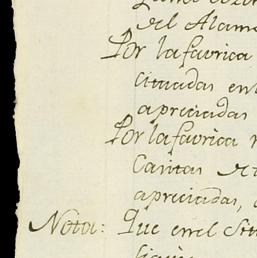 del Alam
Por la favrica
cituadas en
apreciadas
Por la favrica
Cavitas de
apreciadas,
Nota: Que en el Sit